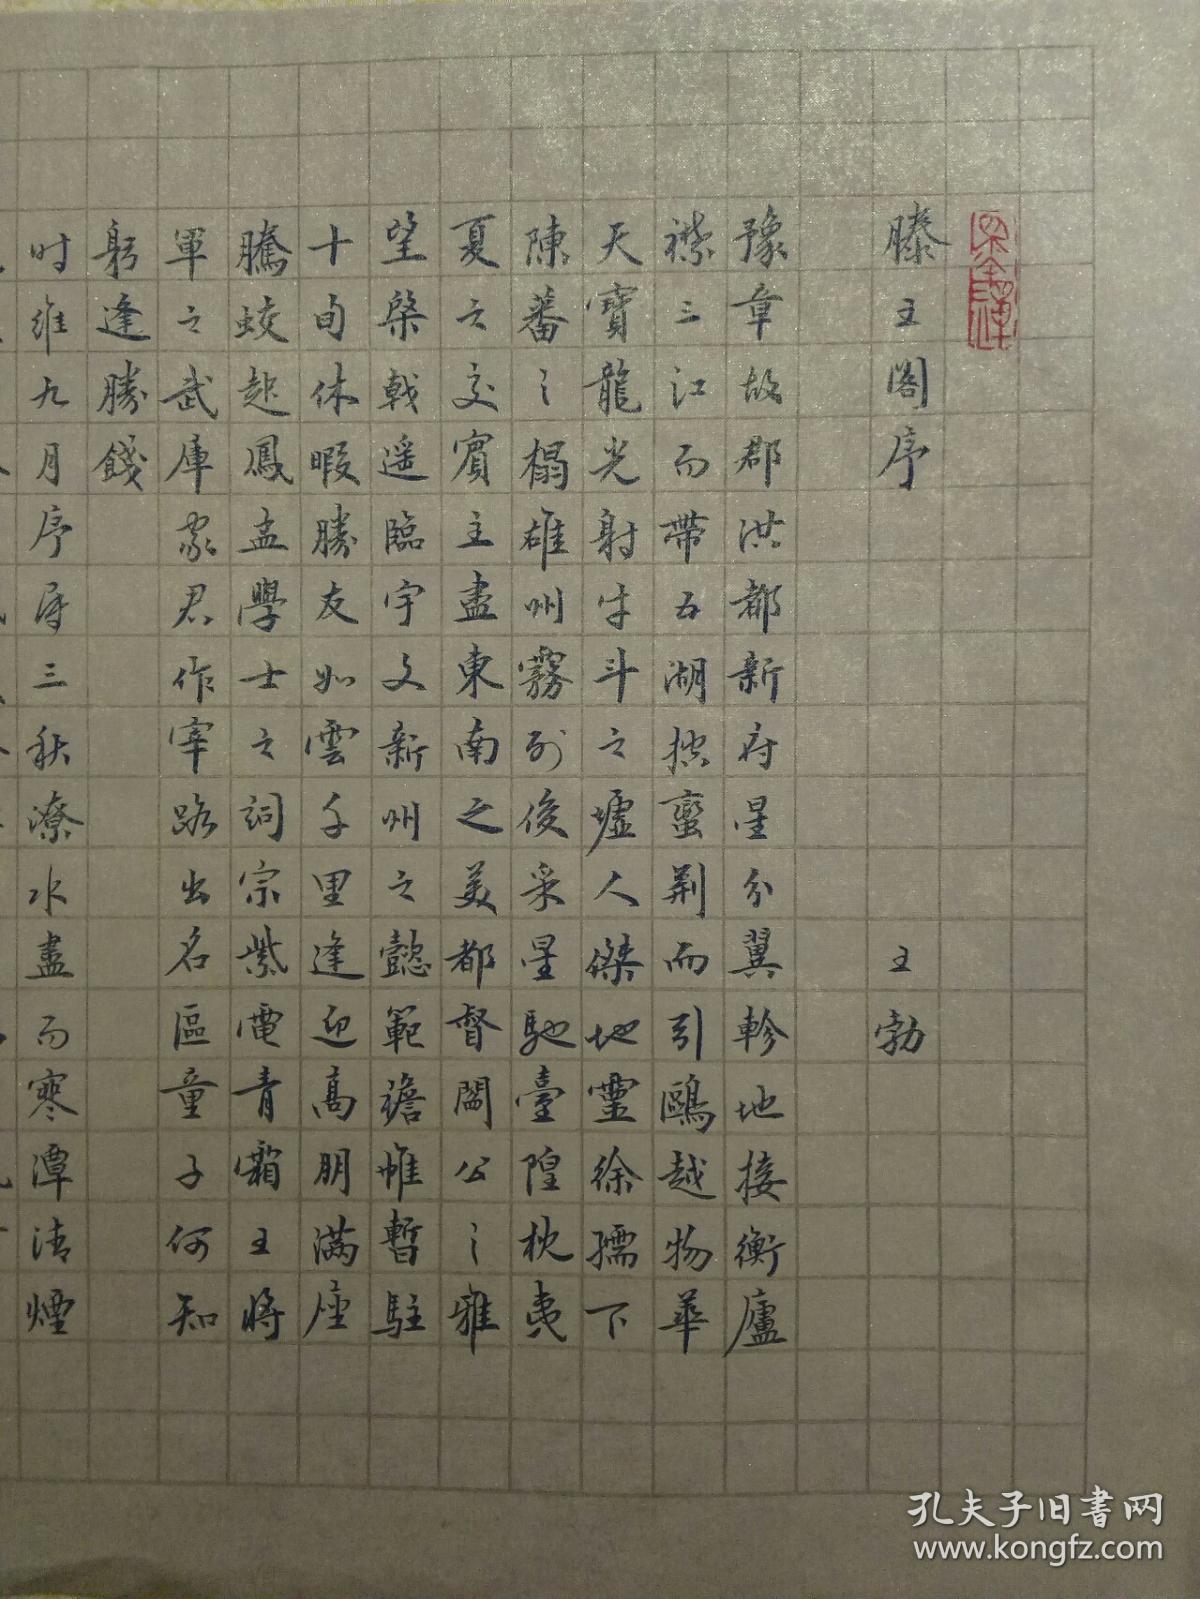 滕王閣序 王勃
豫章故郡洪都新府星分翼軫地接衡廬
襟三江而帶五湖控蠻荊而引鷗越物華
天寶龍光射牛斗之墟人傑地靈徐孺下
陳蕃之榻雄州霧列俊采星馳臺隍枕夷
夏之交賓主盡東南之美都督閻公之雅
望棨戟遥臨宇文新州之懿範襜帷暫駐
十旬休暇勝友如雲千里逢迎高朋满座
騰蛟起鳳孟學士之詞宗紫電青霜王將
軍之武庫家君作宰路出名區童子何知
躬逢勝餞
时維九月序屬三秋潦水盡而寒潭清煙
孔夫子旧书网
www.kongfz.com